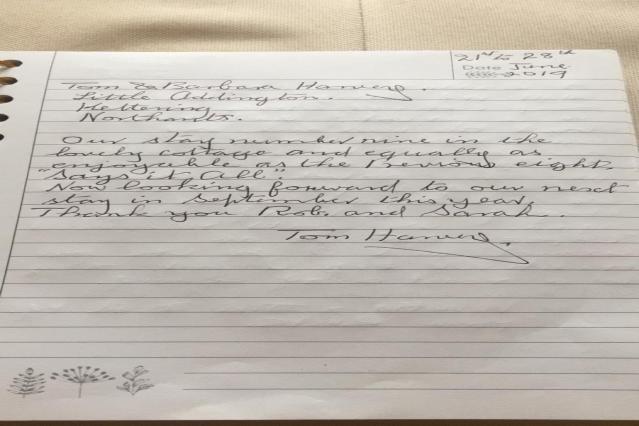 21st to 28th
Date June
2019
Tom & Barbara Harvey.
Little Addington.
Kettering.
Northants.
Our stay number nine in the
lovely cottage and equally as
enjoyable as the previous eight.
"Says it All".
Now looking forward to our next
stay in September this year.
Thank you Rob. and Sarah.
Tom Harvey.